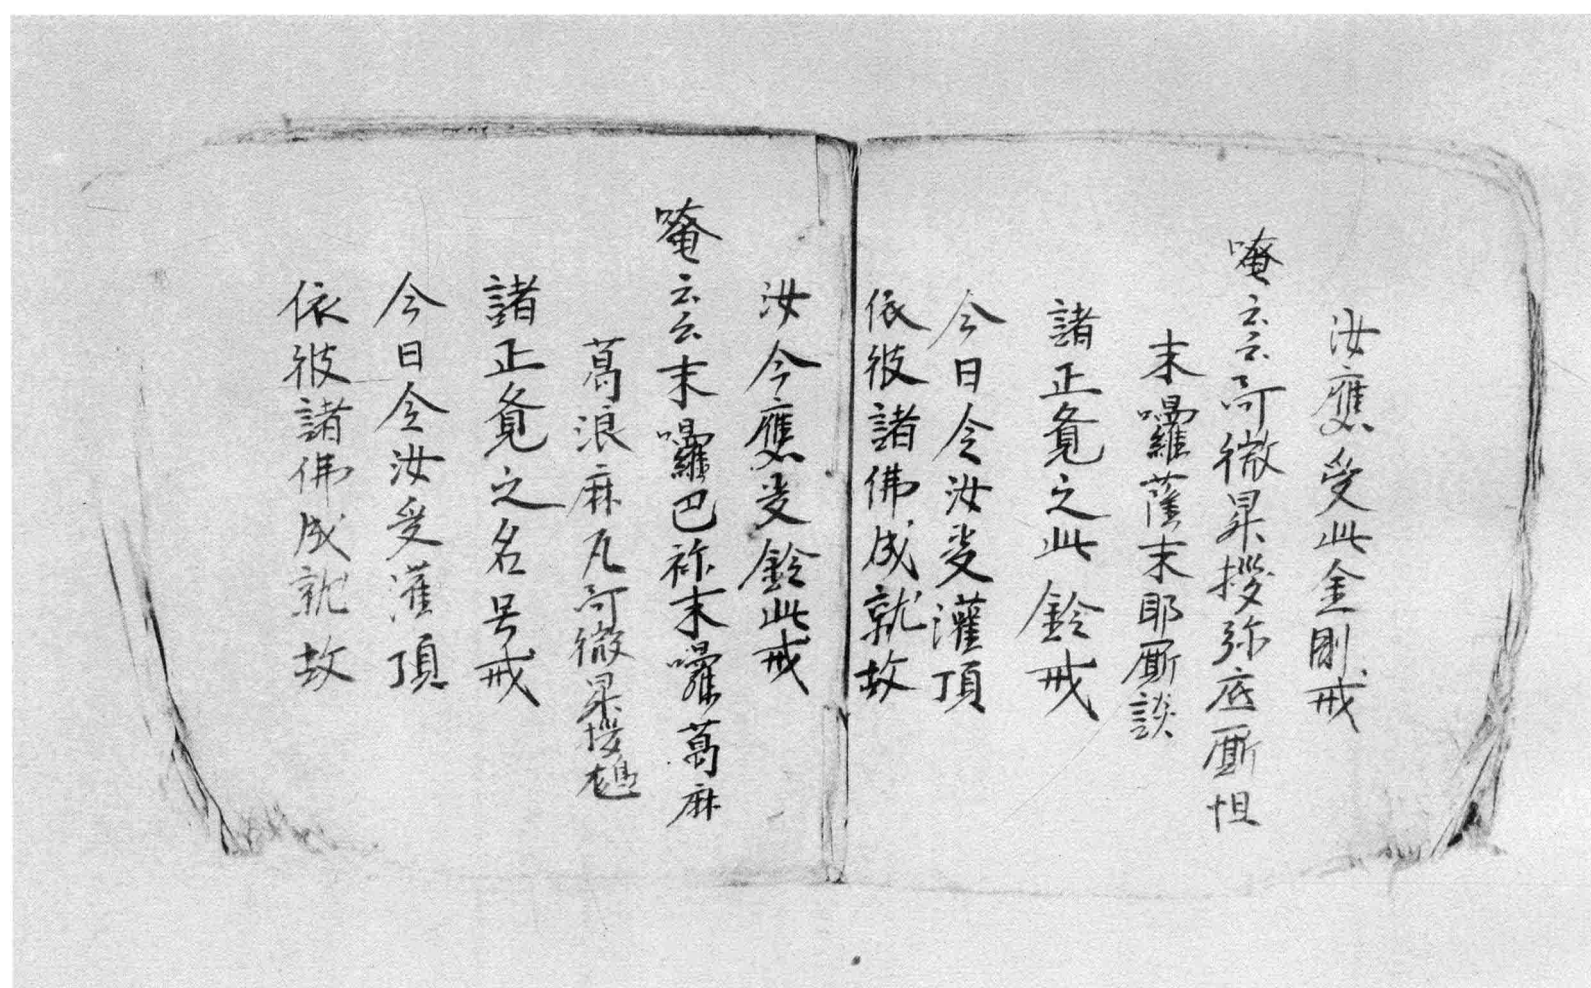 汝應受此金剛戒
唵云云可微㫒撥弥底厮怛
末囉薩末耶厮談
諸正覔之此鈴戒
今日令汝受灌頂
依彼諸佛成就故
汝今應受鈴此戒
唵云云末囉巴祢末囉葛麻
葛浪麻瓦可微㫒撥
諸正覔之名号戒
今日令汝受灌頂
依彼諸佛成就故